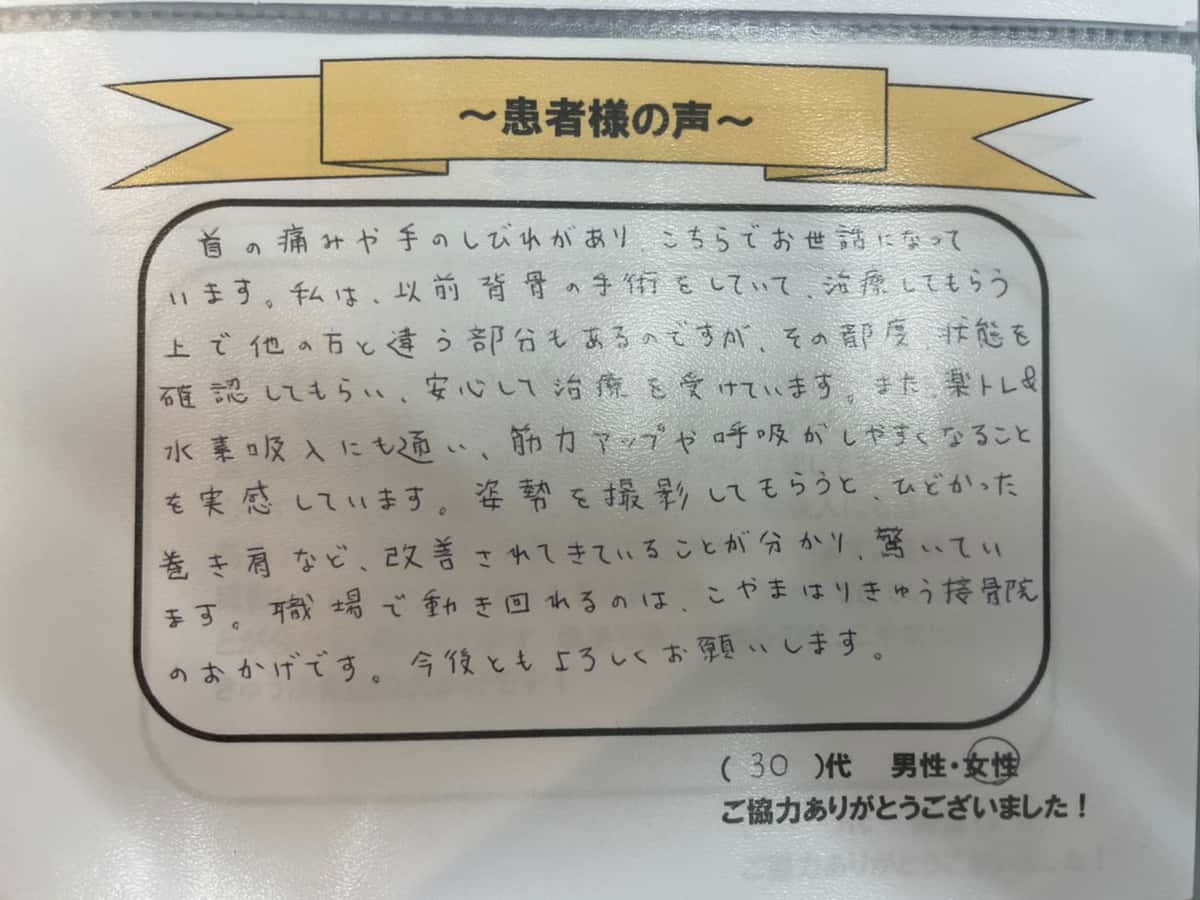 ～患者様の声～
首の痛みや手のしびれがあり こちらでお世話になって
います。私は、以前背骨の手術をしていて、治療してもらう
上で他の方と違う部分もあるのですが、その都度、状態を
確認してもらい、安心して治療を受けています。また、楽トレ&
水素吸入にも通い、筋力アップや呼吸がしやすくなること
を実感しています。姿勢を撮影してもらうと、ひどかった
巻き肩など、改善されてきていることが分かり、驚いてい
ます。職場で動き回れるのは、こやまはりきゅう接骨院
のおかげです。今後ともよろしくお願いします。
( 30 )代 男性・女性
ご協力ありがとうございました！